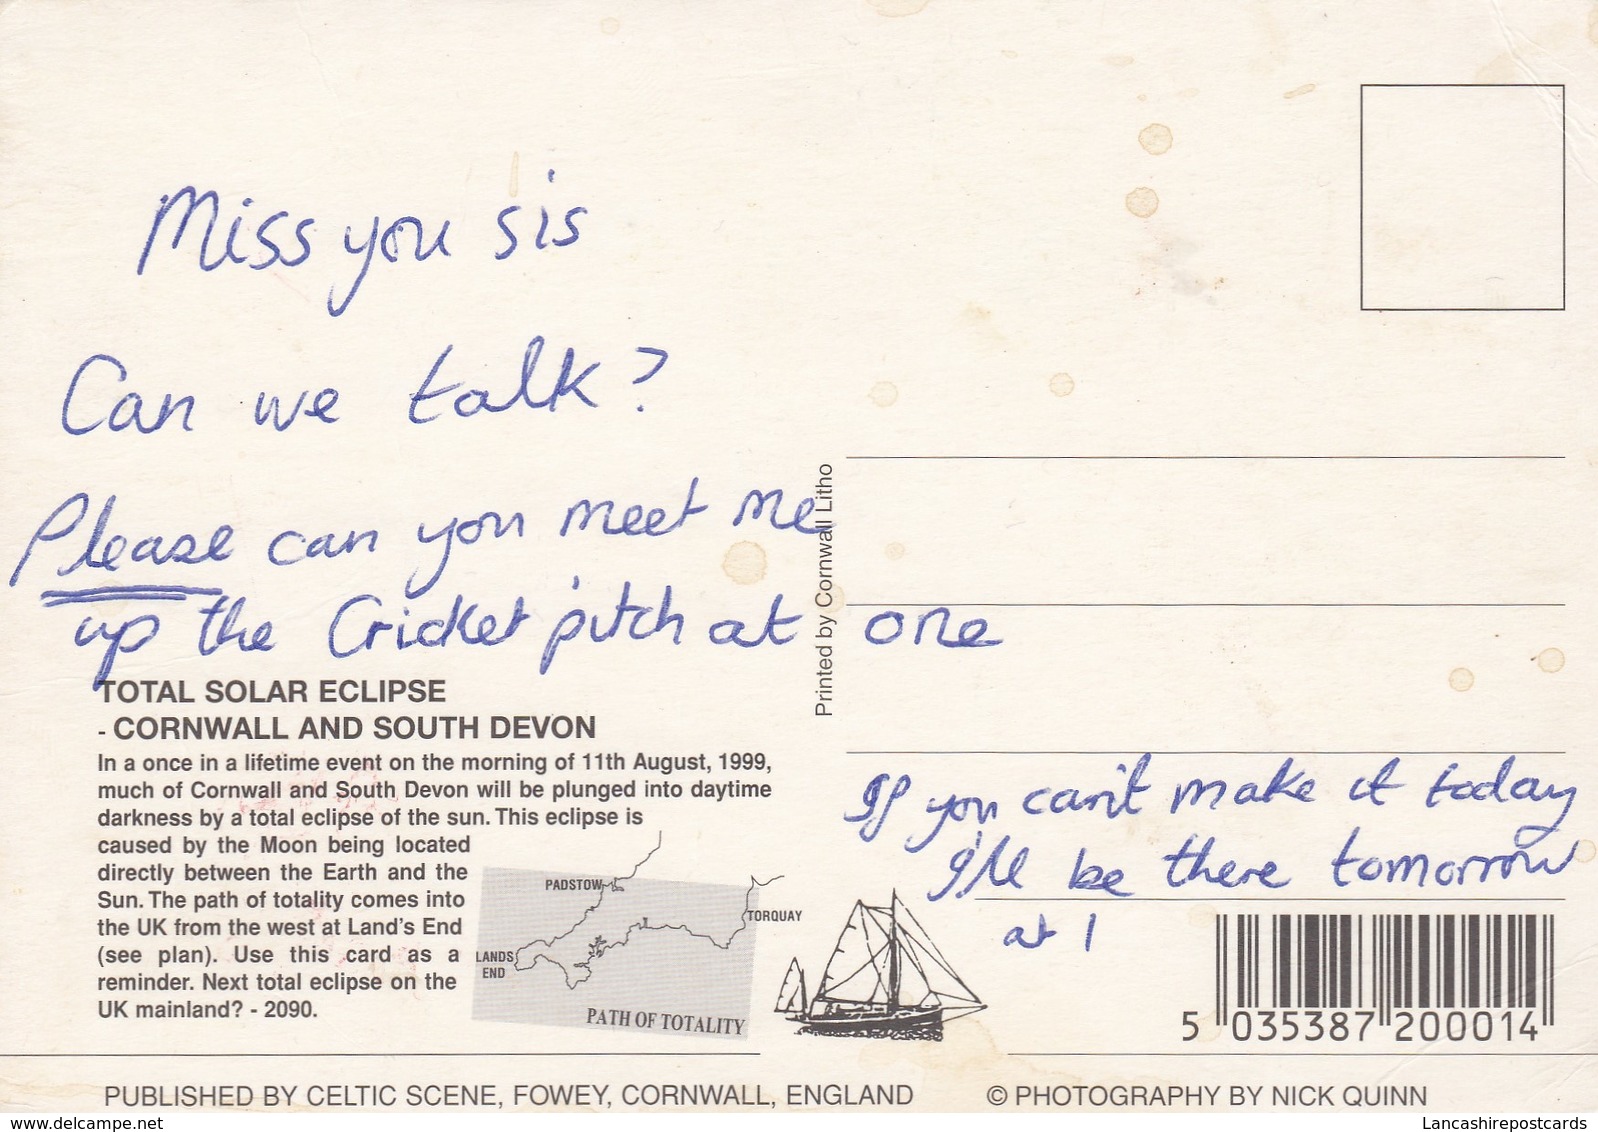 Miss you sis
Can we talk?
Please can you meet me
up the Cricket pitch at one
TOTAL SOLAR ECLIPSE
- CORNWALL AND SOUTH DEVON
In a once in a lifetime event on the morning of 11th August, 1999,
much of Cornwall and South Devon will be plunged into daytime
darkness by a total eclipse of the sun. This eclipse is
caused by the Moon being located
directly between the Earth and the
Sun. The path of totality comes into
the UK from the west at Land's End
(see plan). Use this card as a
reminder. Next total eclipse on the
UK mainland? - 2090.
PADSTOW
TORQUAY
LANDS
END
PATH OF TOTALITY
Printed by Cornwall Litho
If you can't make it today
I'll be there tomorrow
at 1
5 035387 200014
PUBLISHED BY CELTIC SCENE, FOWEY, CORNWALL, ENGLAND
© PHOTOGRAPHY BY NICK QUINN
www.delcampe.net
Lancashirepostcards